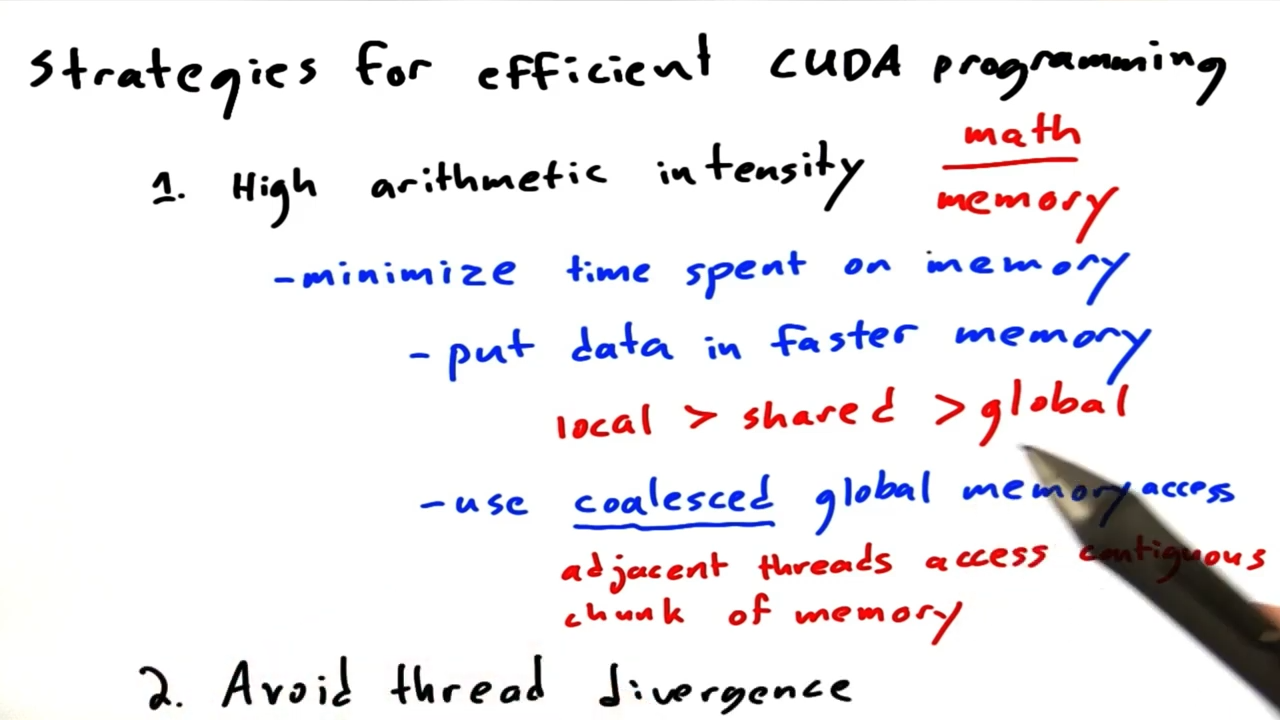 Strategies for efficient CUDA programming
1. High arithmetic intensity
math
memory
-minimize time spent on memory
-put data in faster memory
local > shared > global
-use coalesced global memory access
adjacent threads access contiguous
chunk of memory
2. Avoid thread divergence